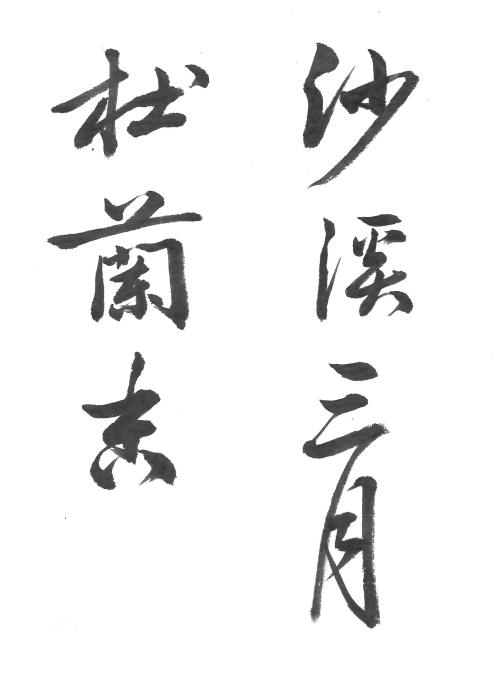 沙溪三月
杜蘭